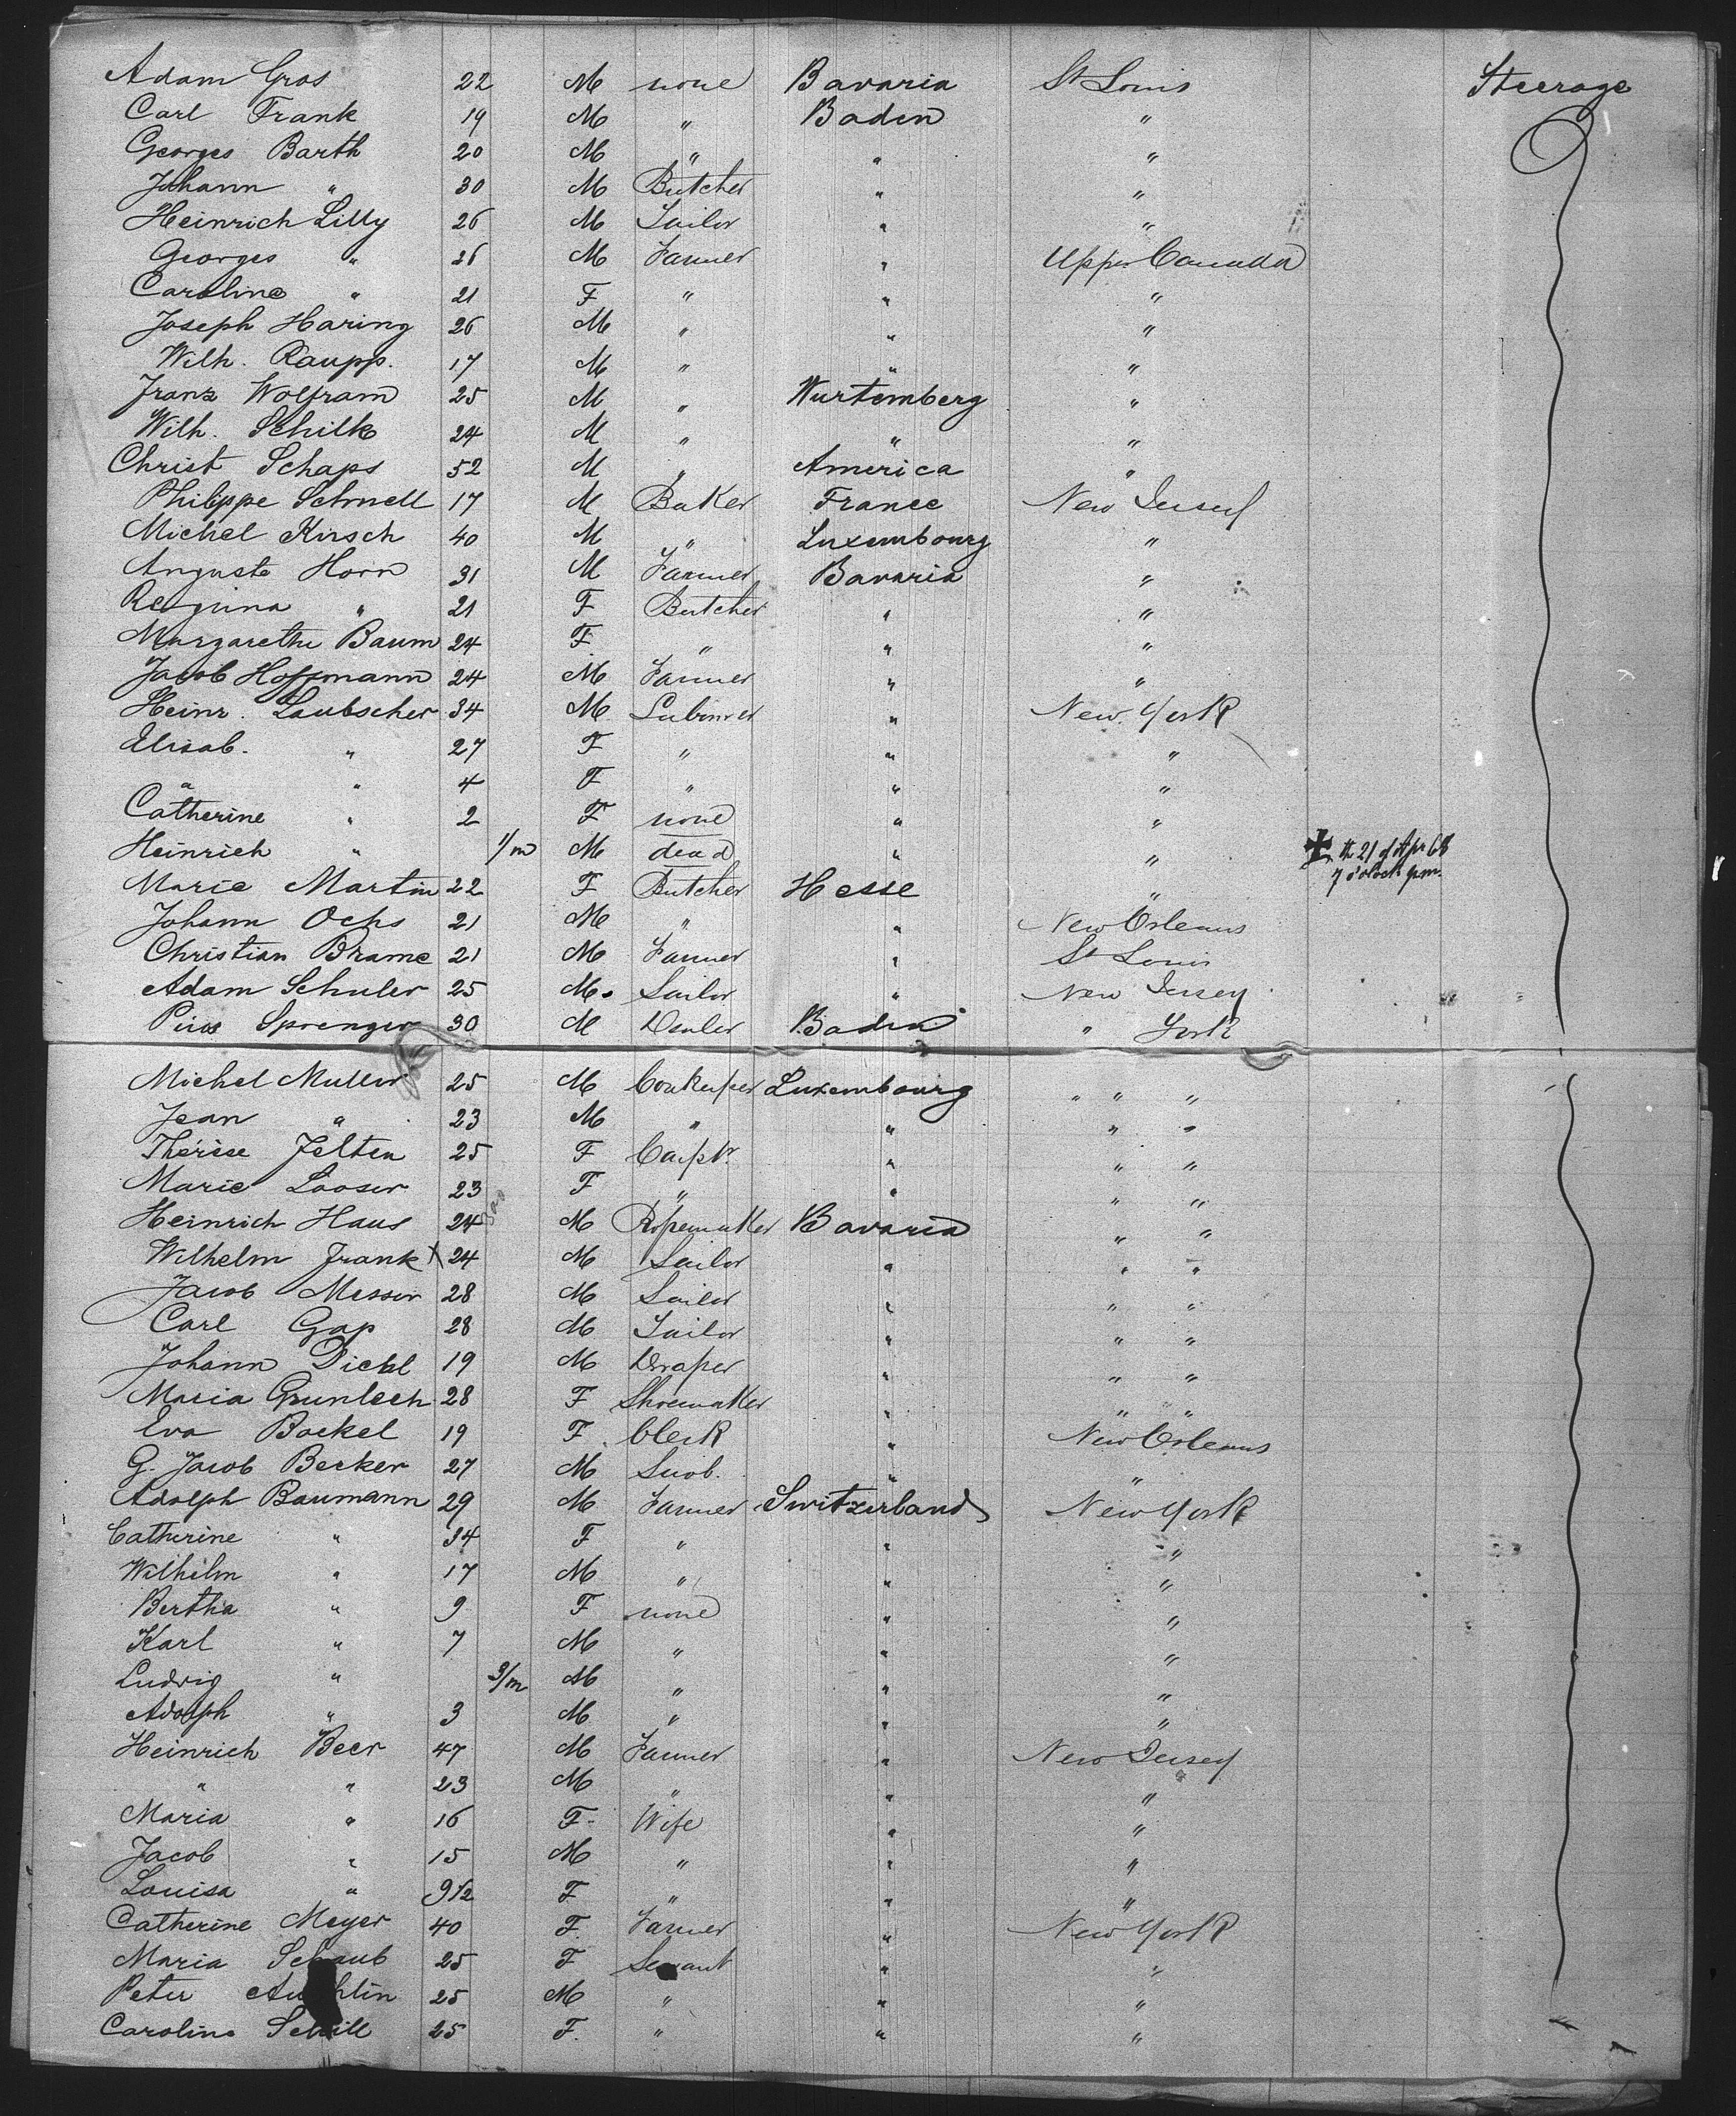 Adam Gros 22 M none Bavaria St Louis Steerage
Carl Frank 19 M " Baden "
Georges Barth 20 M " " "
Johann " 30 M Butcher " "
Heinrich Lilly 26 M Tailor " "
Georges " 26 M Farmer " Upper Canada
Caroline " 21 F " " "
Joseph Haring 26 M " " "
Wilh. Raupp. 17 M " " "
Franz Wolfram 25 M " Wurtemberg "
Wilh. Schilk 24 M " " "
Christ Schaps 52 M " America "
Philippe Schnell 17 M Baker France New Jersey
Michel Kirsch 40 M " Luxembourg "
Auguste Horn 31 M Farmer Bavaria "
Regina " 21 F Butcher " "
Margarethe Baum 24 F " " "
Jacob Hoffmann 24 M Farmer " "
Heinr. Laubscher 34 M Labourer " New York
Elisab. " 27 F " " "
" " 4 F " " "
Catherine " 2 F none " "
Heinrich " 1/m M dead " " th 21 of Apr 68
7 o'clock p.m.
Marie Martin 22 F Butcher Hesse "
Johann Ochs 21 M " " New Orleans
Christian Brame 21 M Farmer " St Louis
Adam Schuler 25 M. Tailor " New Jersey
Pius Sprenger 30 M Dealer Baden " York
Michel Muller 25 M Luxembourg " " "
Jean " 23 M " " " "
Thérèse Felten 25 F Carptr. " " "
Marie Looser 23 F " " " "
Heinrich Haus 24 M Ropemaker Bavaria " "
Wilhelm Frank X 24 M Tailor " " "
Jacob Messer 28 M Tailor " " "
Carl Gap 28 M Tailor " " "
Johann Diehl 19 M Draper " " "
Maria Grunlech 28 F Shoemaker " " "
Eva Bockel 19 F Clerk " New Orleans
G. Jacob Becker 27 M " "
Adolph Baumann 29 M Farmer Switzerland New York
Catherine " 34 F " " "
Wilhelm " 17 M " " "
Bertha " 9 F none " "
Karl " 7 M " " "
Ludwig " 3/m M " " "
Adolph " 3 M " " "
Heinrich Beer 47 M Farmer " New Jersey
" " 23 M " " "
Maria " 16 F Wife " "
Jacob " 15 M " " "
Louisa " 9 1/2 F " " "
Catherine Meyer 40 F. Farmer " New York
Maria Schaub 25 F Servant " "
Peter 25 M " " "
Caroline Schill 25 F. " " "